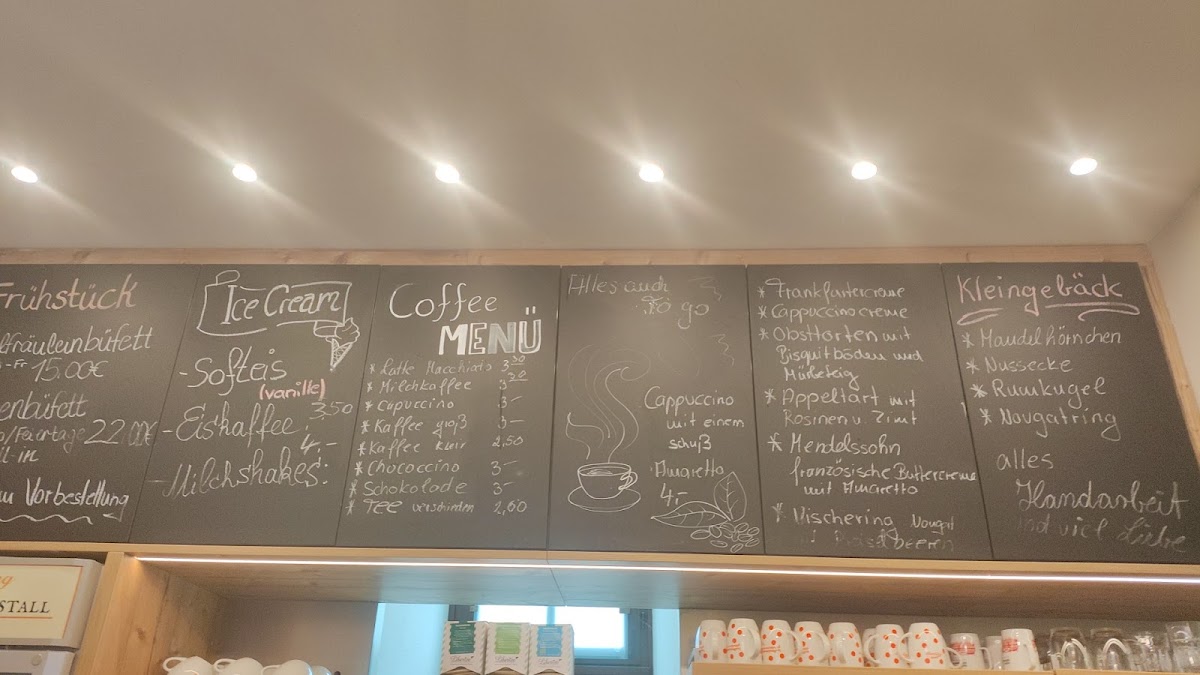 Frühstück
lfräuleinbüfett
-Fr 15.00€
enbüfett
/Feiertage 22,00€
ll-in
Vorbestellung
Ice Cream
-Softeis
(vanille)
-Eiskaffee: 3,50
4,-
-Milchshakes:
Coffee
MENÜ
* Latte Macchiato 3,50
* Milchkaffee 3,20
* Capuccino 3-
* Kaffee groß 3-
* Kaffee klein 2,50
* Chococcino 3-
* Schokolade 3-
* TEE verschieden 2,60
Alles auch
To go
Cappuccino
mit einem
schuß
Amaretto
4,-
* Frankfurtercreme
* Cappuccinocreme
* Obsttorten mit
Bisquitböden und
Mürbeteig
* Appeltart mit
Rosinen u. Zimt
* Mendelssohn
französische Buttercreme
mit Amaretto
* Vischering Nougat
Preiselbeeren
Kleingebäck
* Mandelhörnchen
* Nussecke
* Rumkugel
* Nougatring
alles
Handarbeit
und viel Liebe
STALL